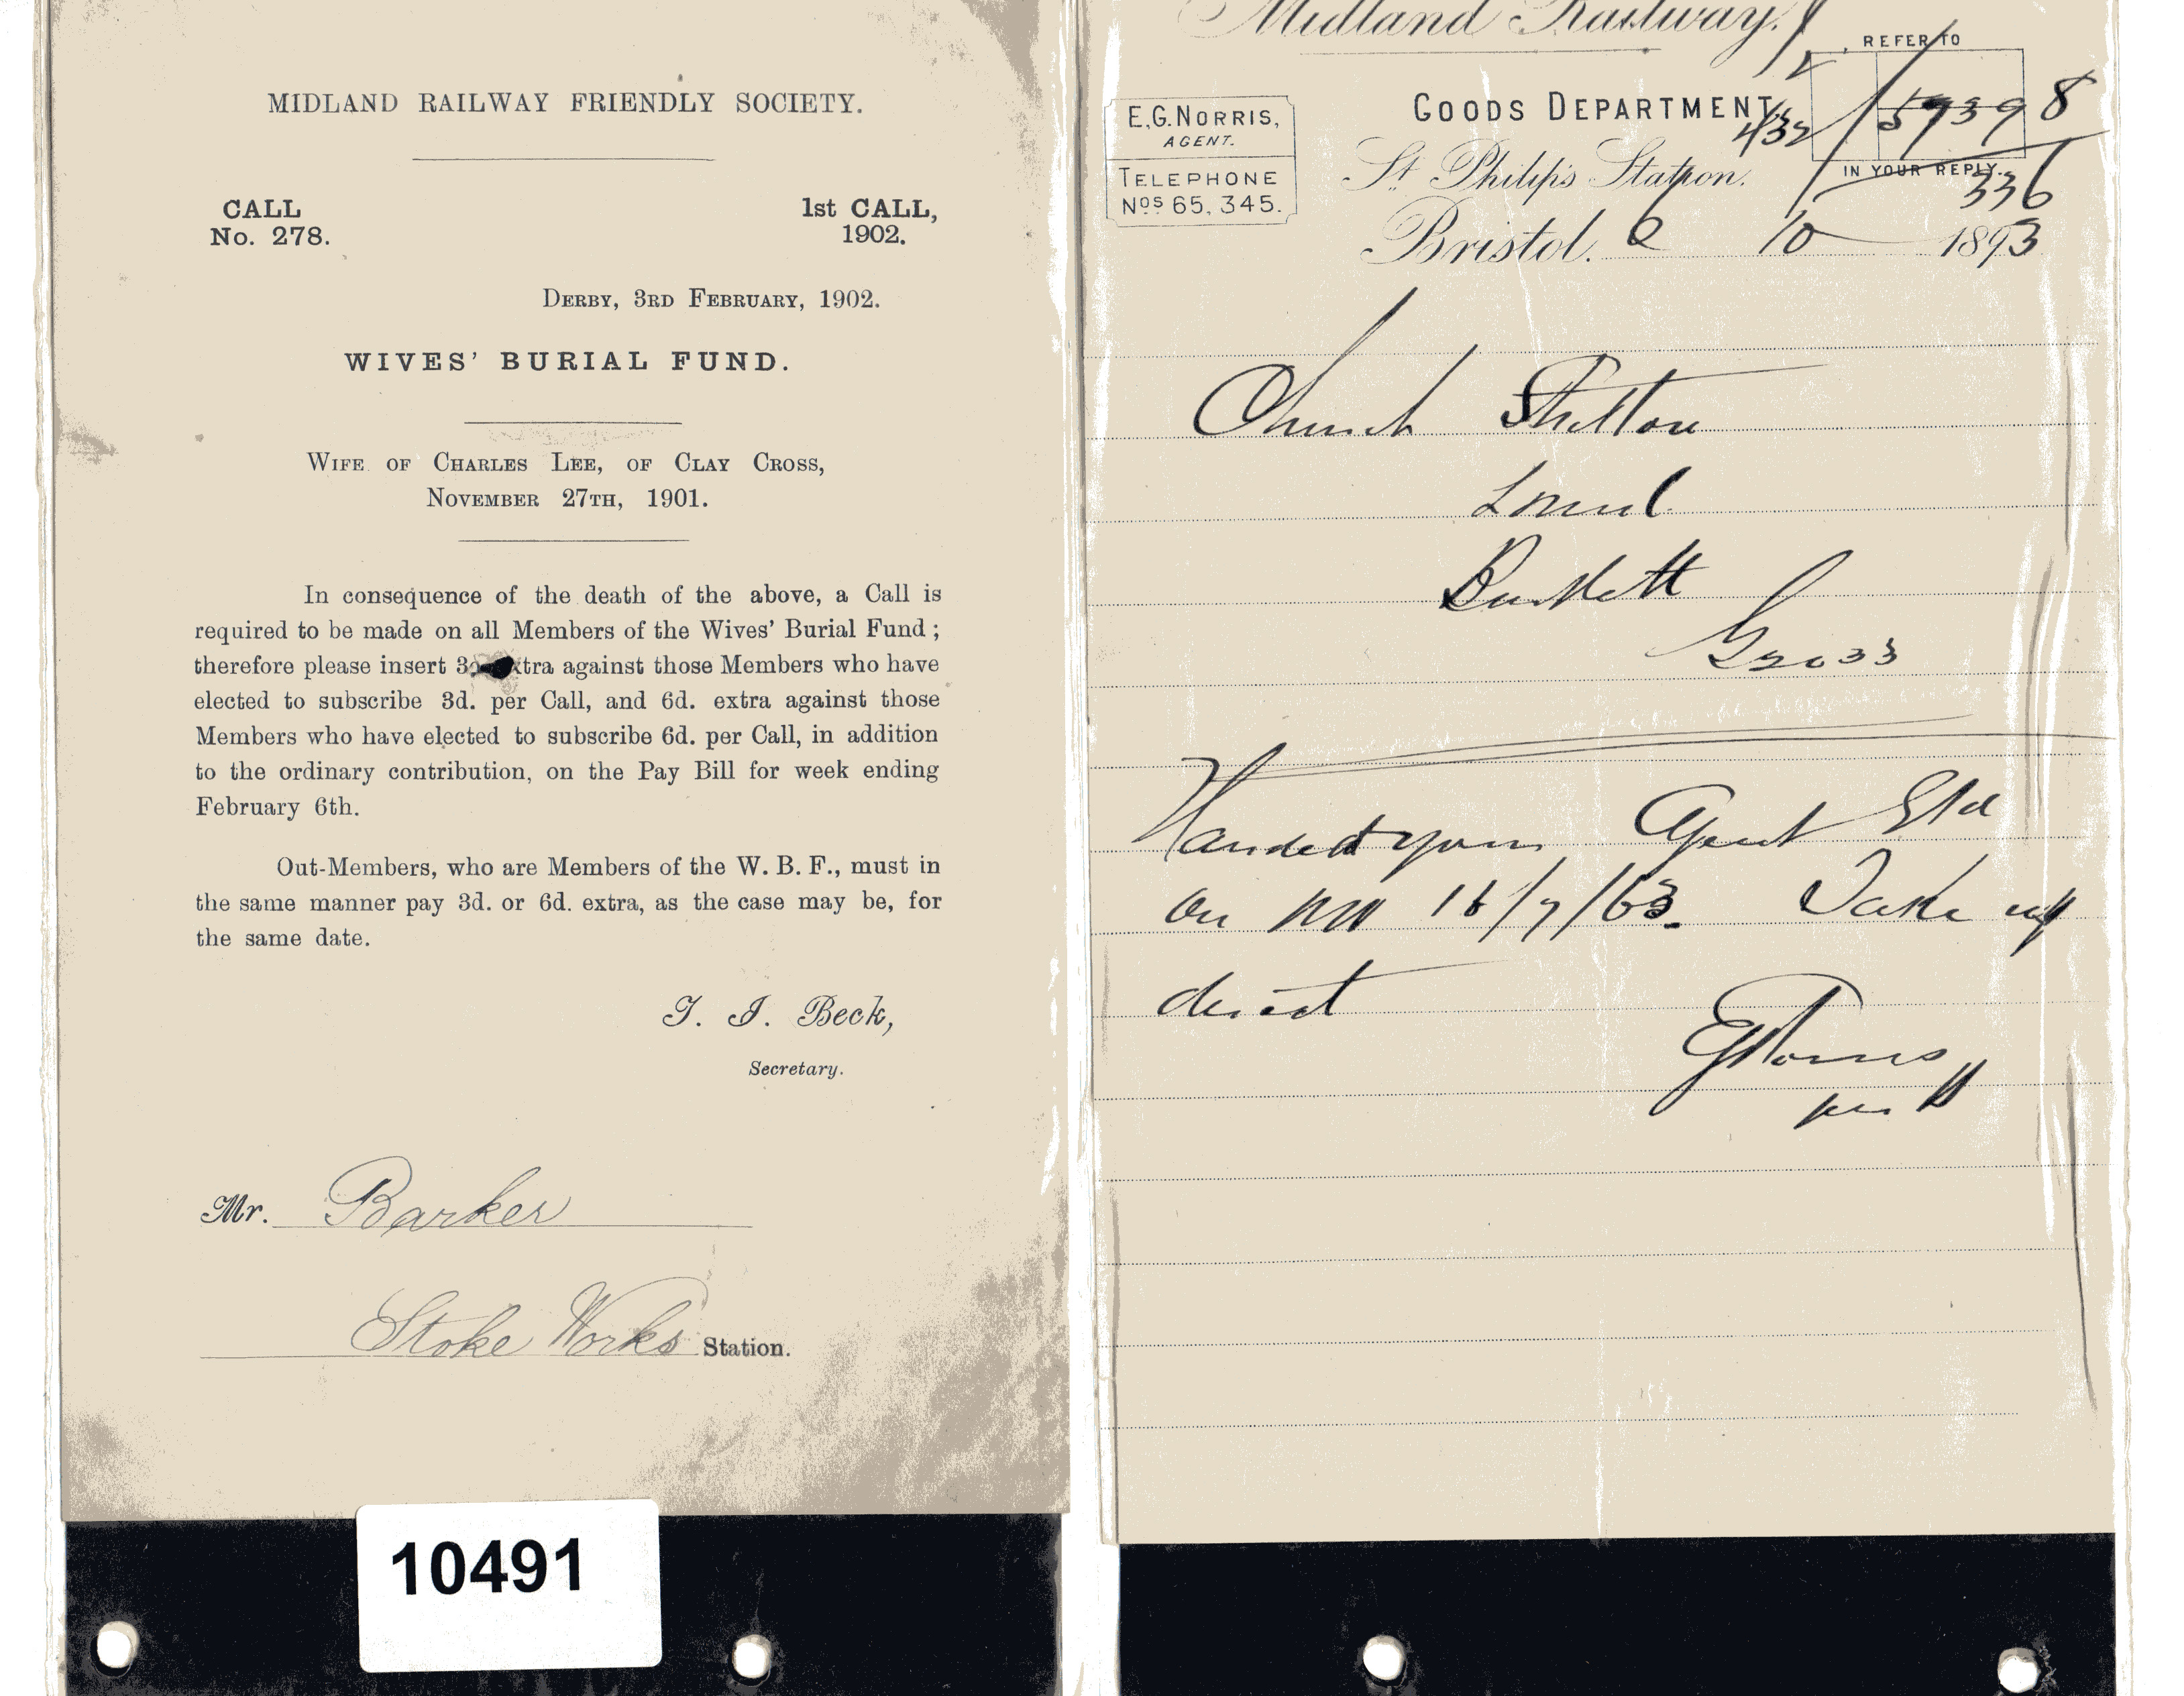 MIDLAND RAILWAY FRIENDLY SOCIETY.
CALL
No. 278.
1st CALL,
1902.
DERBY, 3RD FEBRUARY, 1902.
WIVES' BURIAL FUND.
WIFE OF CHARLES LEE, OF CLAY CROSS,
NOVEMBER 27TH, 1901.
In consequence of the death of the above, a Call is
required to be made on all Members of the Wives' Burial Fund;
therefore please insert xtra against those Members who have
elected to subscribe 3d. per Call, and 6d. extra against those
Members who have elected to subscribe 6d. per Call, in addition
to the ordinary contribution, on the Pay Bill for week ending
February 6th.
Out-Members, who are Members of the W. B. F., must in
the same manner pay 3d. or 6d. extra, as the case may be, for
the same date.
T. I. Beck,
Secretary.
Mr. Barker
Stoke Works Station.
10491
Midland Railway.
REFER TO
E.G. NORRIS,
AGENT.
TELEPHONE
Nos 65, 345.
GOODS DEPARTMENT,
432 59398
IN YOUR REPLY.
336
St Philip's Station.
Bristol. 10 1893
Church Stretton
Handed your Agent
on 16/7/63. Take up
direct
EGNorris
per